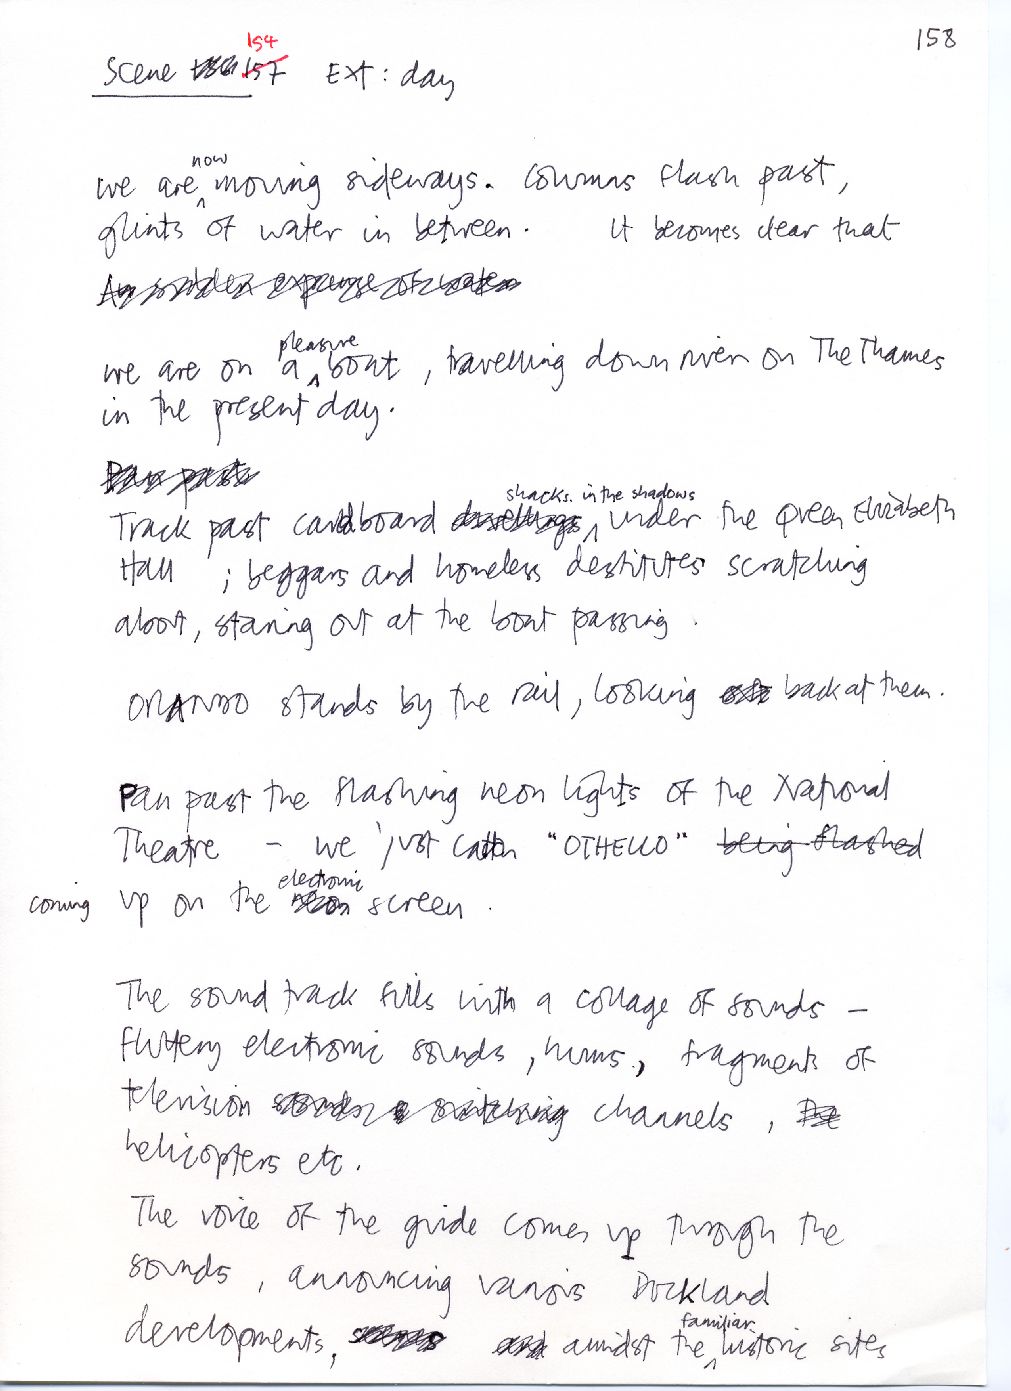 158
154
Scene 157 Ext: day
now
we are moving sideways. Columns flash past,
glints of water in between. It becomes clear that
An sudden expanse of water
pleasure
we are on a boat, travelling down river on The Thames
in the present day.
Pan past
shacks in the shadows
Track past cardboard dwellings under the Queen Elizabeth
Hall ; beggars and homeless destitutes scratching
about, staring out at the boat passing.
ORLANDO stands by the rail, looking back at them.
Pan past the flashing neon lights of the National
Theatre - we just catch "OTHELLO" being flashed
electronic
coming up on the neon screen.
The sound track fills with a collage of sounds -
fluttery electronic sounds, hums, fragments of
television sounds switching channels,
helicopters etc.
The voice of the guide comes up through the
sounds, announcing various Dockland
familiar
developments, and amidst the historic sites